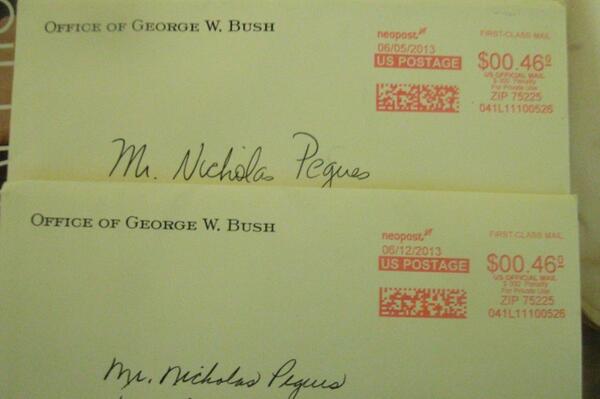 OFFICE OF GEORGE W. BUSH
neopost
FIRST-CLASS MAIL
06/05/2013
US POSTAGE
$00.46⁰
US OFFICIAL MAIL
$ 300 Penalty
For Private Use
ZIP 75225
041L11100526
Mr. Nicholas Pegues
OFFICE OF GEORGE W. BUSH
neopost
FIRST-CLASS MAIL
06/12/2013
US POSTAGE
$00.46⁰
US OFFICIAL MAIL
$ 300 Penalty
For Private Use
ZIP 75225
041L11100526
Mr. Nicholas Pegues